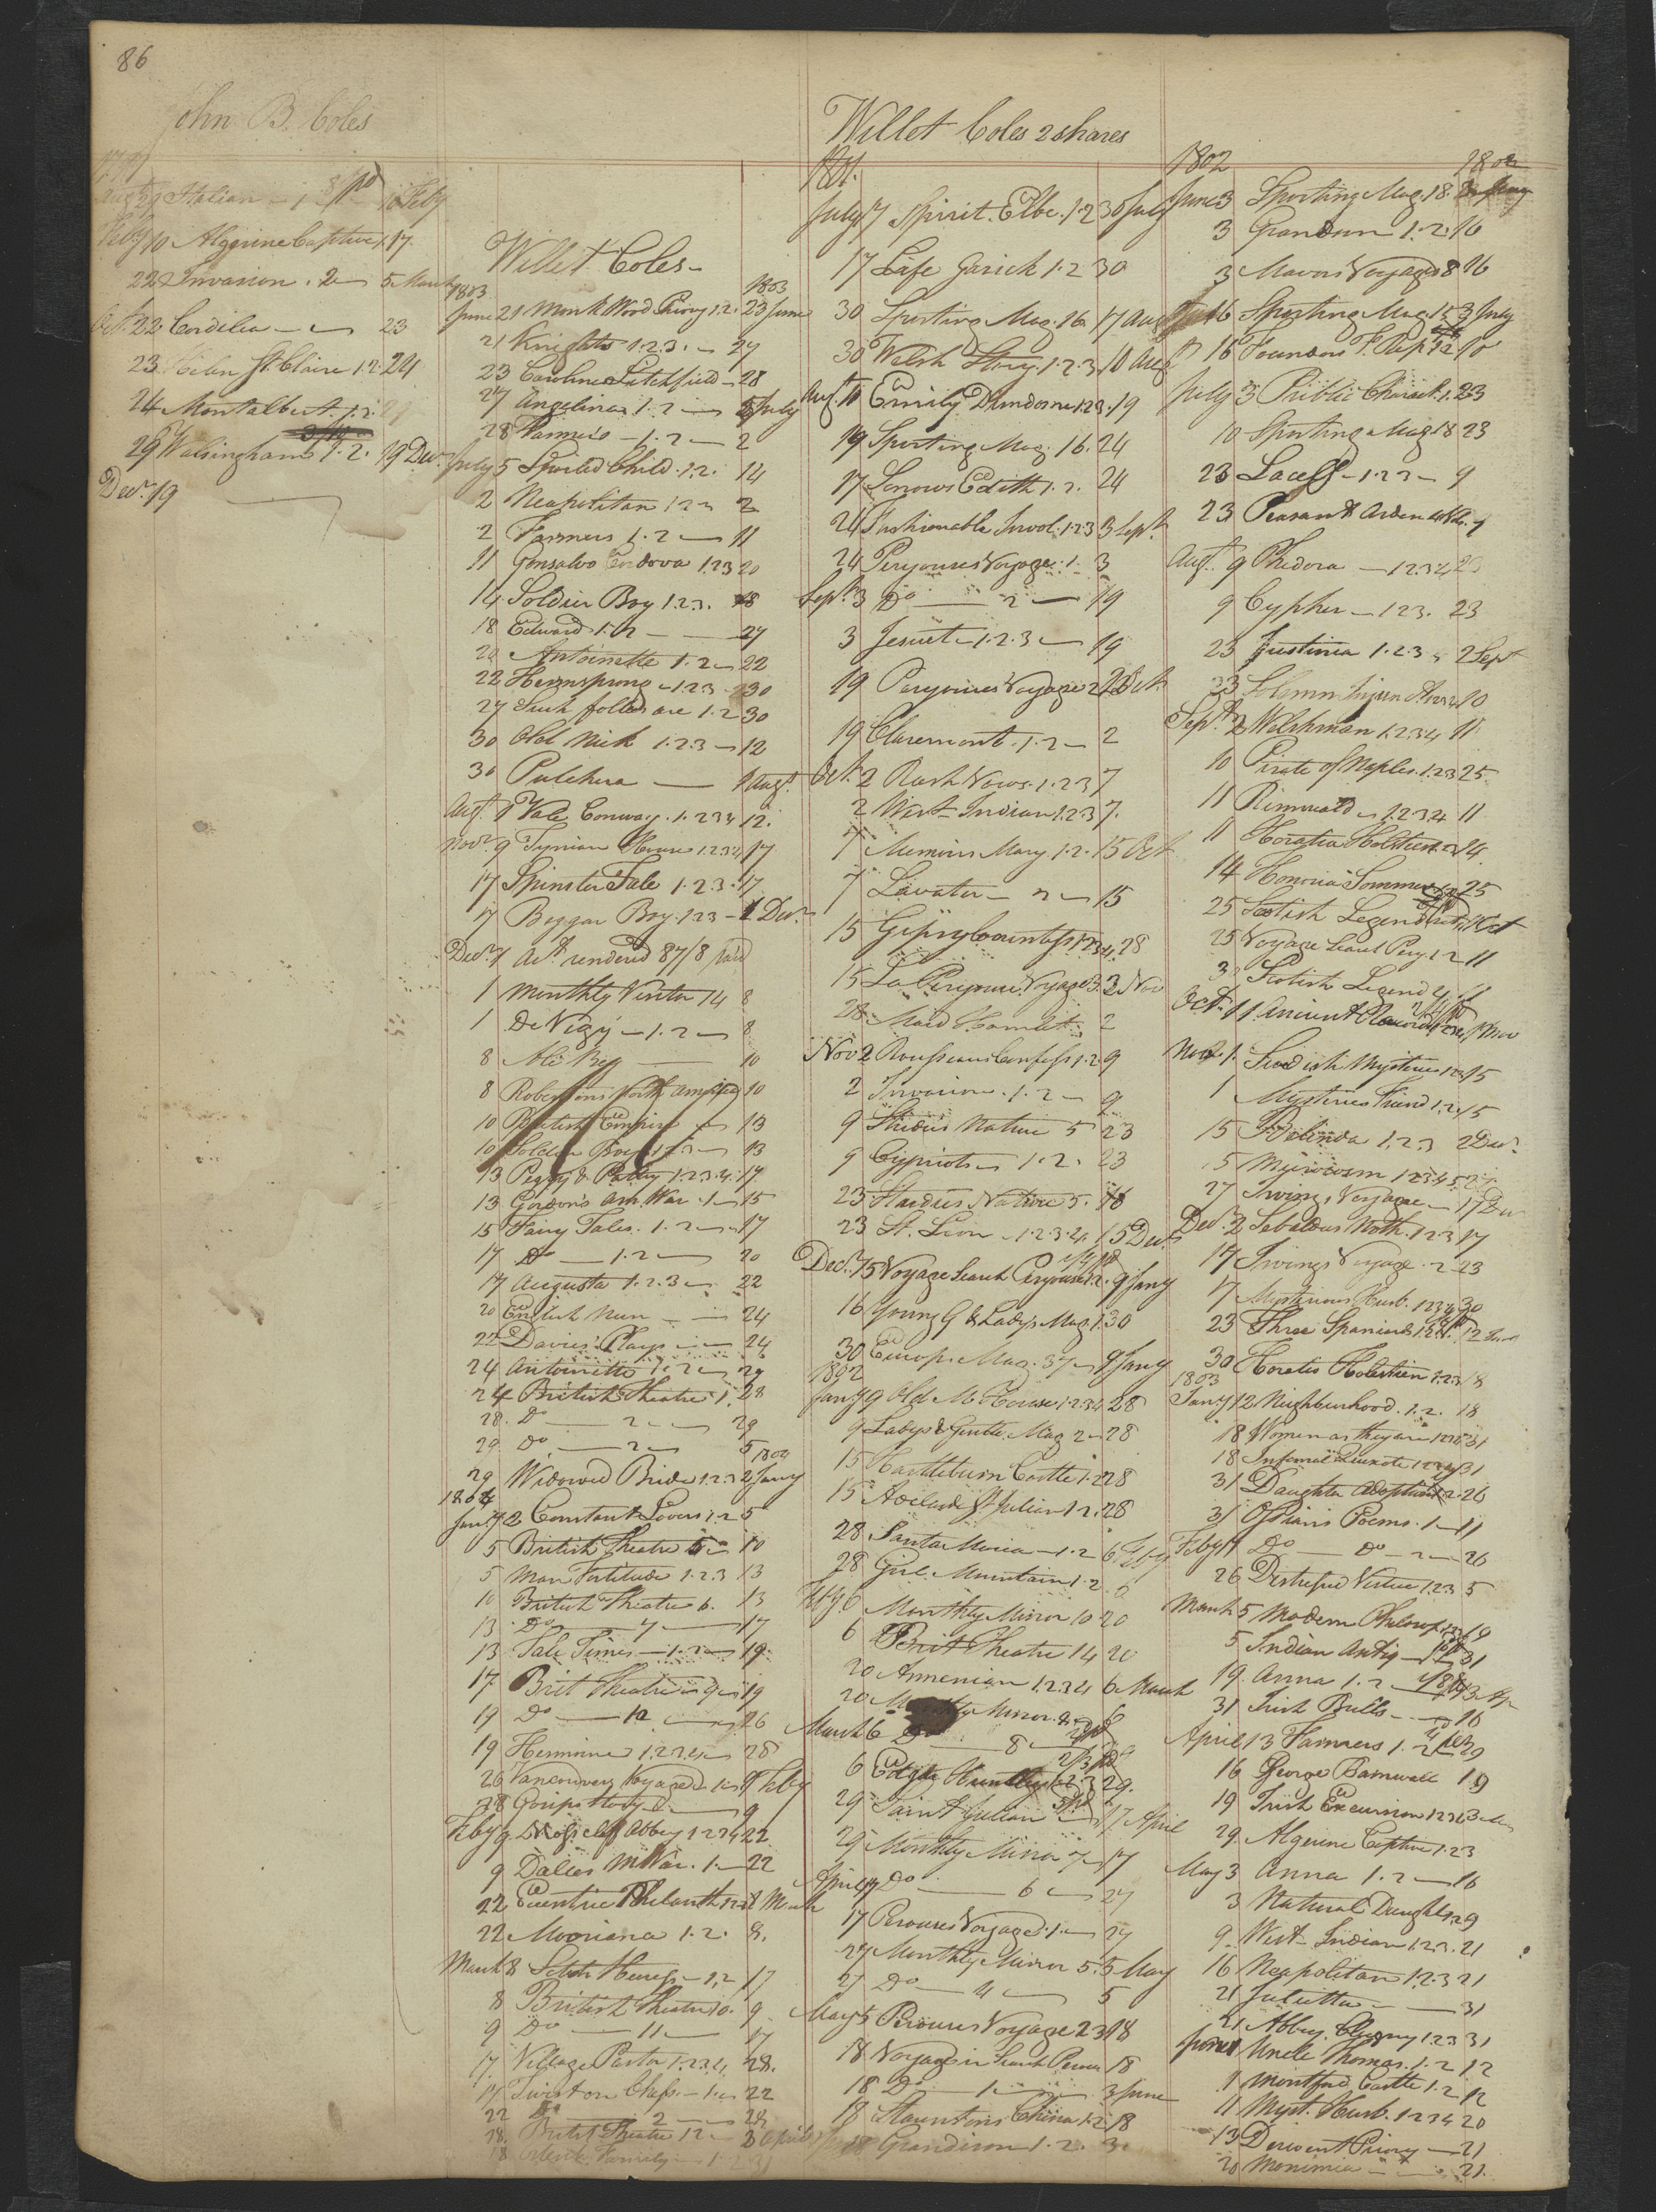 86
John B. Coles
1797
Augt 29 Italian - 1 10 Feby
Feby 10 Algerine Captive 1. 17.
22 Invasion . 2 5 March
Oct. 22 Cordilia 23
23 Helen St. Claire 1.2 24
24 Montalbert 1.2. 29
29 Walsingham 1.2. 19 Decr
Decr 19
Willet Coles
1803 1803
June 21 Monk Wood Priory 1.2. 23 June
21 Knights 1.2.3. 27
23 Caroline Litchfield 28
27 Angelina 1.2 5 July
28 Farmers 1.2 2
July 5 Spoiled Child 1.2. 14
2 Neapolitan 1 2 3 2
2 Farmers 1.2 11
11 Gonsalvo Cordova 1.2.3 20
14 Soldier Boy 1.2.3. 18
18 Edward 1.2 27
20 Antoinette 1.2 22
22 Hermsprong 1.2.3 30
27 Such follies are 1.2 30
30 Old Nick 1.2.3 12
30 Pulchera 1 Augt
Augt 1 Vale Conway 1.2 3 4 12.
Novr 9 Tynian House 1.2.3.4 17
17 Spinster Tale 1.2.3. 17
17 Beggar Boy 1.2.3 1 Decr
Decr 1 Act rendered 87/8 paid
1 Monthly Visitor 14 8
1 De Vigy 1.2 8
8 Ali Bey 10
8 Robertsons North America 10
10 British Empire 13
10 Soldier Boy 1 2 3 13
13 Peggy & Patty 1.2.3.4. 17
13 Gordon's Am War 1 15
15 Fairy Tales 1.2 17
17 Do 1.2 20
17 Augusta 1.2.3 22
20 English Nun 24
22 Davies' Plays 24
24 Antoinette 1.2 29
24 British Theatre 1. 28
28. Do 2 29
29 Do 2 5
1804
29 Widowed Bride 1.2.3 2 Jany
1804
Jany 2 Constant Lovers 1.2 5
5 British Theatre 5 10
5 Man Fortitude 1.2.3 13
10 British Theatre 6. 13
13 Do 7 17
13 Tale Times 1.2 19
17 Brit Theatre 9 19
19 Do 10 26
19 Hermione 1.2.3.4 28
26 Vancouvers Voyage 1 9 Feby
28 Gossips Story 9
Feby 9 Abbey 1 2 3 4 22
9 Dallas M War. 1 22
22 Eccentric Philanth 1 2 3 8 March
22 Mooriana 1.2. 8.
March 8 Scotch Heiress 1.2 17
8 British Theatre 10. 9
9 Do 11 17
17 Village Pastor 1.2.3.4 28.
17 Livingston Chess 1 22
22 Do 2 28
28. British Theatre 12 3 April
Family 1 2 3
Willet Coles 2 shares
1801.
July 17 Spirit Elbe 1.2 30 July
17 Life Garick 1.2 30
30 Sporting Mag. 16 17 Aug
30 Welsh Story 1.2.3 10 Aug
Augt 10 Emily Dundorne 1.2.3. 19
19 Sporting Mag. 16. 24
17 Sorrows Edith 1.2. 24
24 Fashionable Invol. 1.2.3 3 Sept.
24 Peryouses Voyage 1. 3
Sept. 3 Do 2 19
3 Jesuit 1.2.3 19
19 Peryouses Voyage 2 2 Oct.
19 Claremont 1.2 2
Oct. 2 Rash Vows 1.2.3 7
2 West Indian 1.2.3 7.
7 Memoirs Mary 1.2. 15 Oct
7 Lavater 2 15
15 Gipsy Countess 1.2.3.4. 28
15 La Peryouse Voyage 3. 2 Nov
28 Maid Hamlet 2
Nov 2 Rousseaus Confess 1.2 9
2 Invasion 1.2 9
9 Studies Nature 5 23
9 Cypriots 1.2. 23
23 Studies Nature 5. 16
23 St. Leon 1.2.3.4. 15 Decr.
Decr. 15 Voyage Search Peryouse 1.2. 9 Jany
16 Young G & Ladys Mag. 1. 30
30 Europ. Mag. 37 9 Jany
1802
Jany 9 Old M House 1.2.3.4 28
9 Ladys & Gentle. Mag 2 28
15 Castleburn Castle 1.2 28
15 Adelaide St. Julian 1.2. 28
28 Santa Maria 1.2 6 Feby
28 Girl Mountain 1.2 6
Feby 6 Monthly Mirror 10 20
6 Brit Theatre 14 20
20 Armenian 1.2.3.4 6 March
20 Monthly Mirror 9 6
March 6 Do 8
6 Edgar Huntley 1.2.3 29.
29 Saint Julian 17 April
29 Monthly Mirror 7 17
April 17 Do 6 27
17 Perouses Voyage 1 27
27 Monthly Mirror 5. 5 May
27 Do 4 5
May 5 Perouses Voyage 2 3 18
18 Voyage in Search Perouse 18
18 Do 1 3 June
18 Stauntons China 1.2 18
18 Grandison 1.2. 3
1802 1802
June 3 Sporting Mag. 18.
3 Grandison 1.2. 16
3 Mavors Voyages 8 16
16 Sporting Mag. 15 3 July
16 Founders F. 10
July 3 Public Charact. 1. 23
10 Sporting Mag 18 23
23 1.2.3 9
23 Peasant Arden 9
Augt. 9 Phedora 1 2 3 4 23
9 Cypher 1 2 3. 23
23 Justinia 1.2.3 2 Sept
23 Solemn Injun 10
Sept 2 Welshman 1.2.3.4 11
10 Pirate of Naples 1.2.3 25
11 Rimwald 1.2.3.4 11
11 Horatia Holstien 14.
14 Honoria Sommerville 25
25 Scotish Legend 1 Oct
25 Voyage Search Pery. 1.2 11
30 Scotish Legend 4 11
Oct. 11 Ancient Records 1 Nov
Nov. 1. Swedish Mysteries 1 2 3 15
1 Mysterious Friend 1.2. 15
15 Belinda 1.2.3 2 Decr.
15 Microcosm 1 2 3 4 5 27
27 Irvings Voyage 17 Dec
Decr. 2 Sebaldus Noth. 1 2 3 17
17 Irvings Voyage 2 23
17 Mysterious Husb. 1 2 3 4 30
23 Three Spaniards 12 Jan
30 Horatio Holstien 1.2.3 18
1803
Jany 12 Neighbourhood 1.2. 18
18 Women as they are 31
18 Infernal Quixote 31
31 Daughter Adoption 26
31 Ossians Poems 1 11
Feby 11 Do Do 2 26
26 Distressed Virtue 1.2.3 5
March 5 Modern Philosop 19
5 Indian Antiq 31
19 Anna 1.2
31 Irish Bulls 16
April 13 Farmers 1. 2 29
16 George Barnwell 19
19 Irish Excursion
29 Algerine Captive 1. 23
May 3 Anna 1.2 16
3 Natural Daught 9
9 West Indian 1.2.3. 21
16 Neapolitan 1.2.3 21
21 Julietta 31
21 Abbey Clugny 1.2.3 31
June 1 Uncle Thomas 1.2 12
1 Montford Castle 1.2 12
11 Myst. Husb. 1 2 3 4 20
13 Derwent Priory 21
20 Monimia 21.